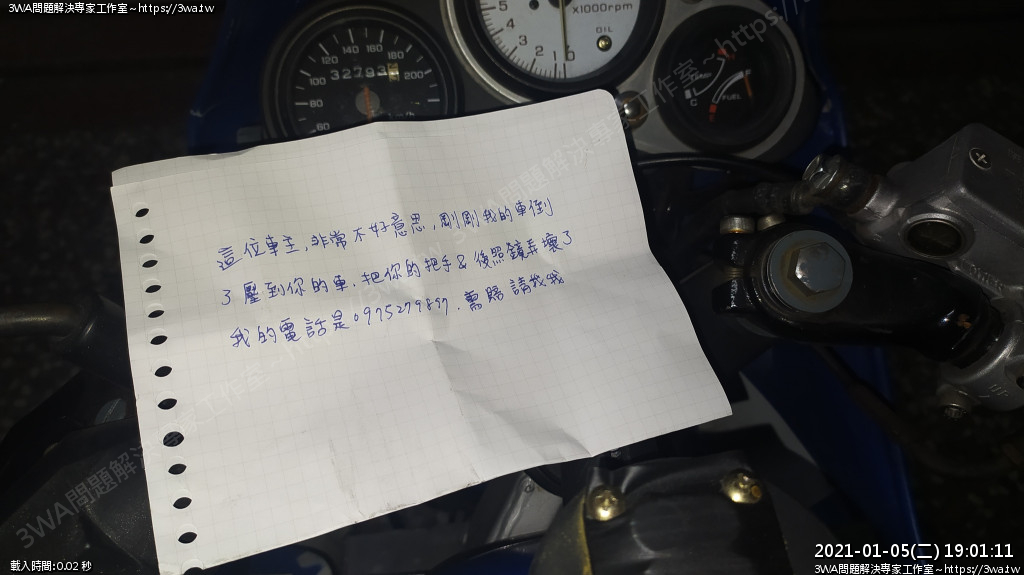 3WA問題解決專家工作室~https://3wa.tw
x1000rpm
OIL
5
4
3
2
1
0
120 140 160 180
100 200
80
60
32793
TEMP
C
FUEL
這位車主,非常不好意思,剛剛我的車倒
了壓到你的車,把你的把手&後照鏡弄壞了
我的電話是0975279897.需賠請找我
3WA問題解決專家工作室~https://
3WA問題解決專家工作室
載入時間:0.02 秒
2021-01-05(二) 19:01:11
3WA問題解決專家工作室~https://3wa.tw